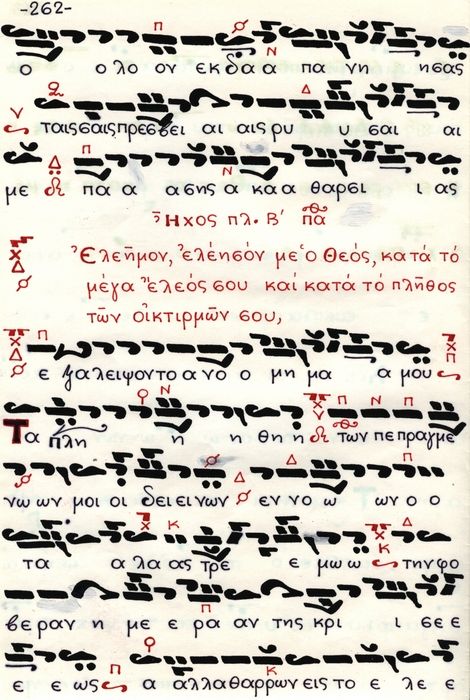 -262-
ο ολο ον εκδα α πα νη ησας
ταις σαις πρεσβει αι αις ρυ υ σαι αι
με πα α α σης α κα α θαρσι ι ας
Ἦχος πλ. Β' πα
Ἐλεῆμον, ἐλέησόν με ὁ Θεός, κατά τό
μέγα ἔλεός σου καί κατά τό πλῆθος
τῶν οἰκτιρμῶν σου,
ε ξαλειψον το ανο ο μη μα α μου
Τα πλη η η θη η των πεπραγμε
νω ων μοι οι δει ει νων εν νο ω ων ο ο
τα α λα ας τρε ε μω ω την φο
βεραν η με ε ρα αν της κρι ι σε ε
ε ε ως α αλλα θαρρων εις το ε λε ε